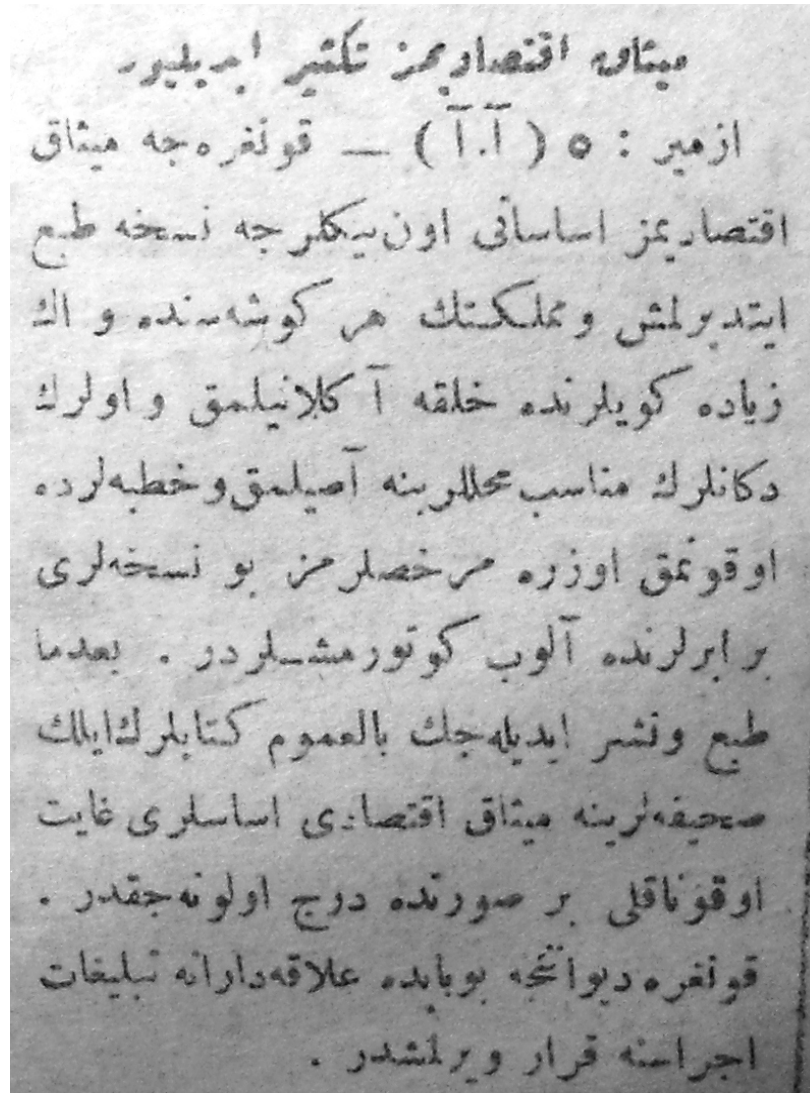 ميثاق اقتصاديمز تكثير ايديليور
ازمير : ٥ ( آ.آ ) — قونغره‌جه ميثاق
اقتصاديمز اساساتى اون بيكلرجه نسخه طبع
ايتديرلمش و مملكتك هر كوشه‌سنده و اك
زياده كويلرنده خلقه آكلاتيلمق و اولرك
دكانلرك مناسب محللرينه آصيلمق و خطبه‌لرده
اوقونمق اوزره مرخصلرمز بو نسخه‌لرى
برابرلرنده آلوب كوتورمشلردر . بعدما
طبع و نشر ايديله‌جك بالعموم كتابلرك ايلك
صحيفه‌لرينه ميثاق اقتصادى اساسلرى غايت
اوقوناقلى بر صورتده درج اولونه‌جقدر .
قونغره ديواننجه بوبابده علاقه‌دارانه تبليغات
اجراسنه قرار ويرلمشدر .